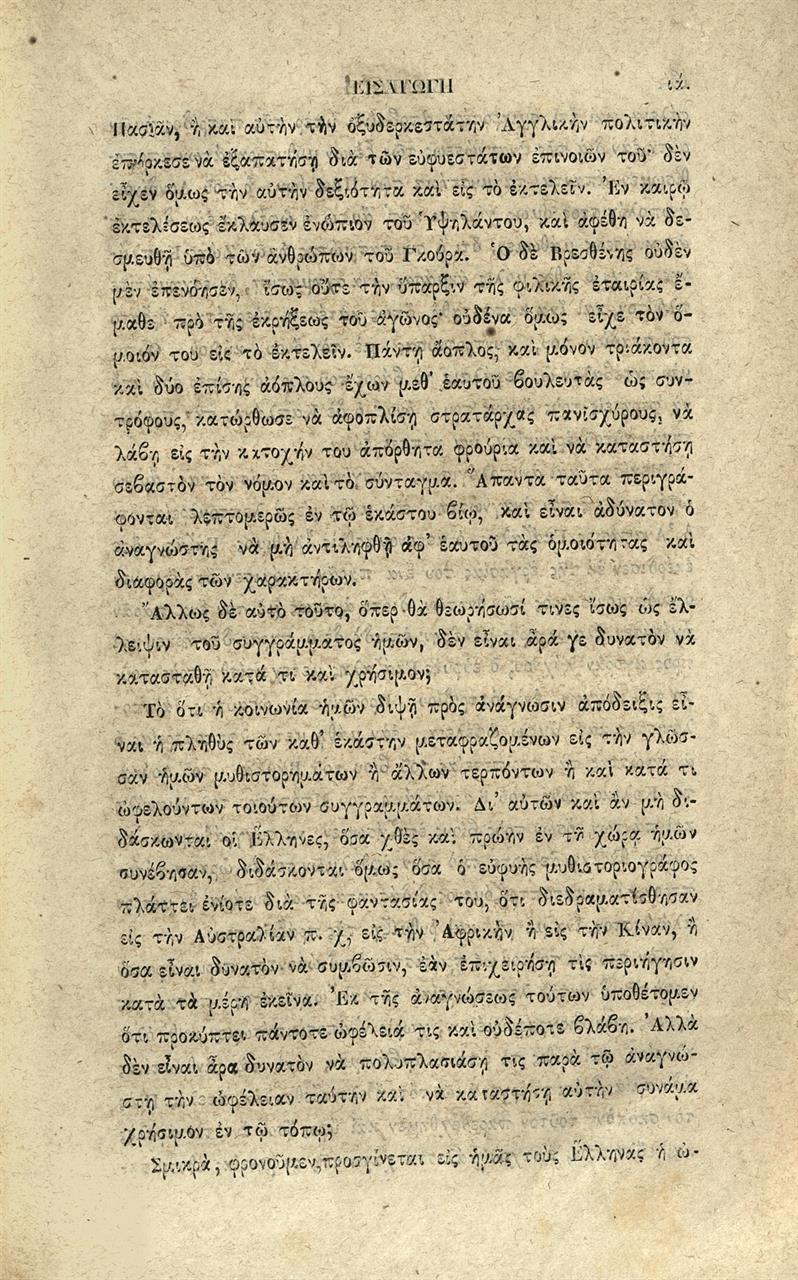 ΕΙΣΑΓΩΓΗ ιά.
Πασιᾶν, ἢ καὶ αὐτὴν τὴν ὀξυδερκεστάτην Ἀγγλικὴν πολιτικὴν
ἐπήρκεσε νὰ ἐξαπατήσῃ διὰ τῶν εὐφυεστάτων ἐπινοιῶν τοῦ· δὲν
εἶχεν ὅμως τὴν αὐτὴν δεξιότητα καὶ εἰς τὸ ἐκτελεῖν. Ἐν καιρῷ
ἐκτελέσεως ἔκλαυσεν ἐνώπιον τοῦ Ὑψηλάντου, καὶ ἀφέθη νὰ δε-
σμευθῇ ὑπὸ τῶν ἀνθρώπων τοῦ Γκούρα. Ὁ δὲ Βρεσθένης οὐδὲν
μὲν ἐπενόησεν, ἴσως οὔτε τὴν ὕπαρξιν τῆς φιλικῆς ἑταιρίας ἔ-
μαθε πρὸ τῆς ἐκρήξεως τοῦ ἀγῶνος· οὐδένα ὅμως εἶχε τὸν ὅ-
μοιόν του εἰς τὸ ἐκτελεῖν. Πάντη ἄοπλος, καὶ μόνον τριάκοντα
καὶ δύο ἐπίσης ἀόπλους ἔχων μεθ' ἑαυτοῦ βουλευτὰς ὡς συν-
τρόφους, κατώρθωσε νὰ ἀφοπλίσῃ στρατάρχας πανισχύρους, νὰ
λάβῃ εἰς τὴν κατοχήν του ἀπόρθητα φρούρια καὶ νὰ καταστήσῃ
σεβαστὸν τὸν νόμον καὶ τὸ σύνταγμα. Ἅπαντα ταῦτα περιγρά-
φονται λεπτομερῶς ἐν τῷ ἑκάστου βίῳ, καὶ εἶναι ἀδύνατον ὁ
ἀναγνώστης νὰ μὴ ἀντιληφθῇ ἀφ' ἑαυτοῦ τὰς ὁμοιότητας καὶ
διαφορὰς τῶν χαρακτήρων.
Ἄλλως δὲ αὐτὸ τοῦτο, ὅπερ θὰ θεωρήσωσί τινες ἴσως ὡς ἔλ-
λειψιν τοῦ συγγράμματος ἡμῶν, δὲν εἶναι ἆρά γε δυνατὸν νὰ
κατασταθῇ κατά τι καὶ χρήσιμον;
Τὸ ὅτι ἡ κοινωνία ἡμῶν διψῇ πρὸς ἀνάγνωσιν ἀπόδειξις εἶ-
ναι ἡ πληθὺς τῶν καθ' ἑκάστην μεταφραζομένων εἰς τὴν γλῶσ-
σαν ἡμῶν μυθιστορημάτων ἢ ἄλλων τερπόντων ἢ καὶ κατά τι
ὠφελούντων τοιούτων συγγραμμάτων. Δι' αὐτῶν καὶ ἂν μὴ δι-
δάσκωνται οἱ Ἕλληνες, ὅσα χθὲς καὶ πρώην ἐν τῇ χώρᾳ ἡμῶν
συνέβησαν, διδάσκονται ὅμως ὅσα ὁ εὐφυὴς μυθιστοριογράφος
πλάττει ἐνίοτε διὰ τῆς φαντασίας του, ὅτι διεδραματίσθησαν
εἰς τὴν Αὐστραλίαν π. χ, εἰς τὴν Ἀφρικὴν ἢ εἰς τὴν Κίναν, ἢ
ὅσα εἶναι δυνατὸν νὰ συμβῶσιν, ἐὰν ἐπιχειρήσῃ τὶς περιήγησιν
κατὰ τὰ μέρη ἐκεῖνα. Ἐκ τῆς ἀναγνώσεως τούτων ὑποθέτομεν
ὅτι προκύπτει πάντοτε ὠφέλειά τις καὶ οὐδέποτε βλάβη. Ἀλλὰ
δὲν εἶναι ἆρα δυνατὸν νὰ πολυπλασιάσῃ τις παρὰ τῷ ἀναγνώ-
στῃ τὴν ὠφέλειαν ταύτην καὶ νὰ καταστήσῃ αὐτὴν συνάμα
χρήσιμον ἐν τῷ τόπῳ;
Σμικρὰ, φρονοῦμεν, προσγίνεται εἰς ἡμᾶς τοὺς Ἕλληνας ἡ ὠ-